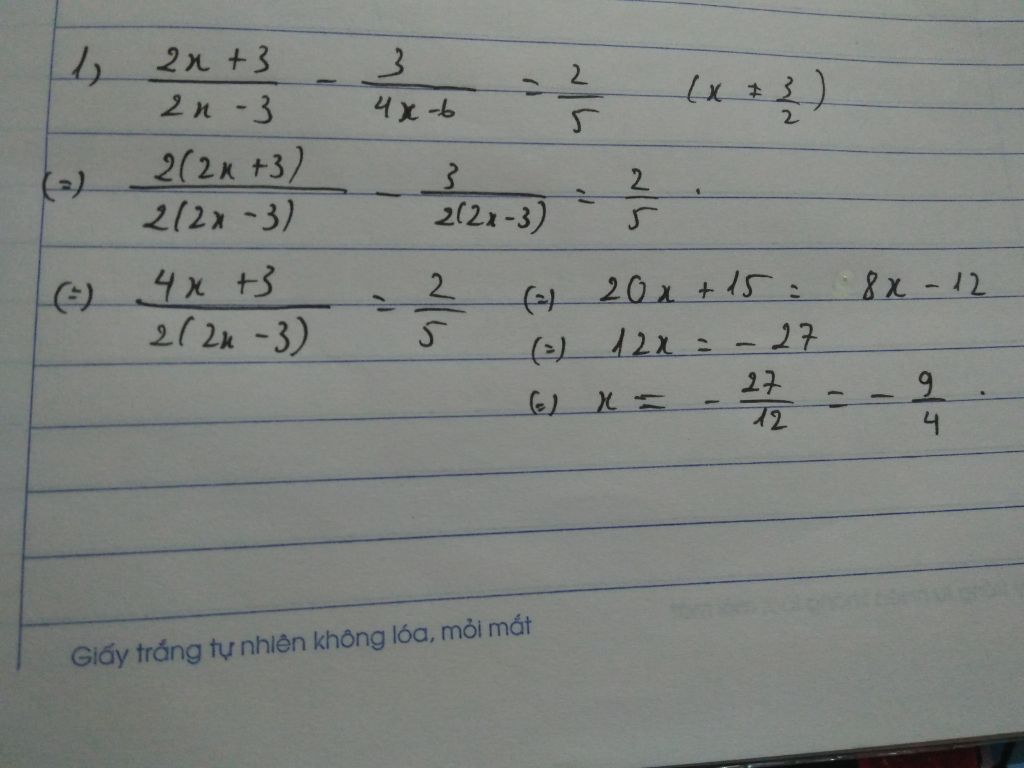 1, (2x + 3)/(2x - 3) - 3/(4x - 6) = 2/5 (x ≠ 3/2)
(=) 2(2x + 3)/2(2x - 3) - 3/2(2x - 3) = 2/5 .
(=) (4x + 3)/2(2x - 3) = 2/5 (=) 20x + 15 = 8x - 12
(=) 12x = - 27
(=) x = - 27/12 = - 9/4 .
Giấy trắng tự nhiên không lóa, mỏi mắt